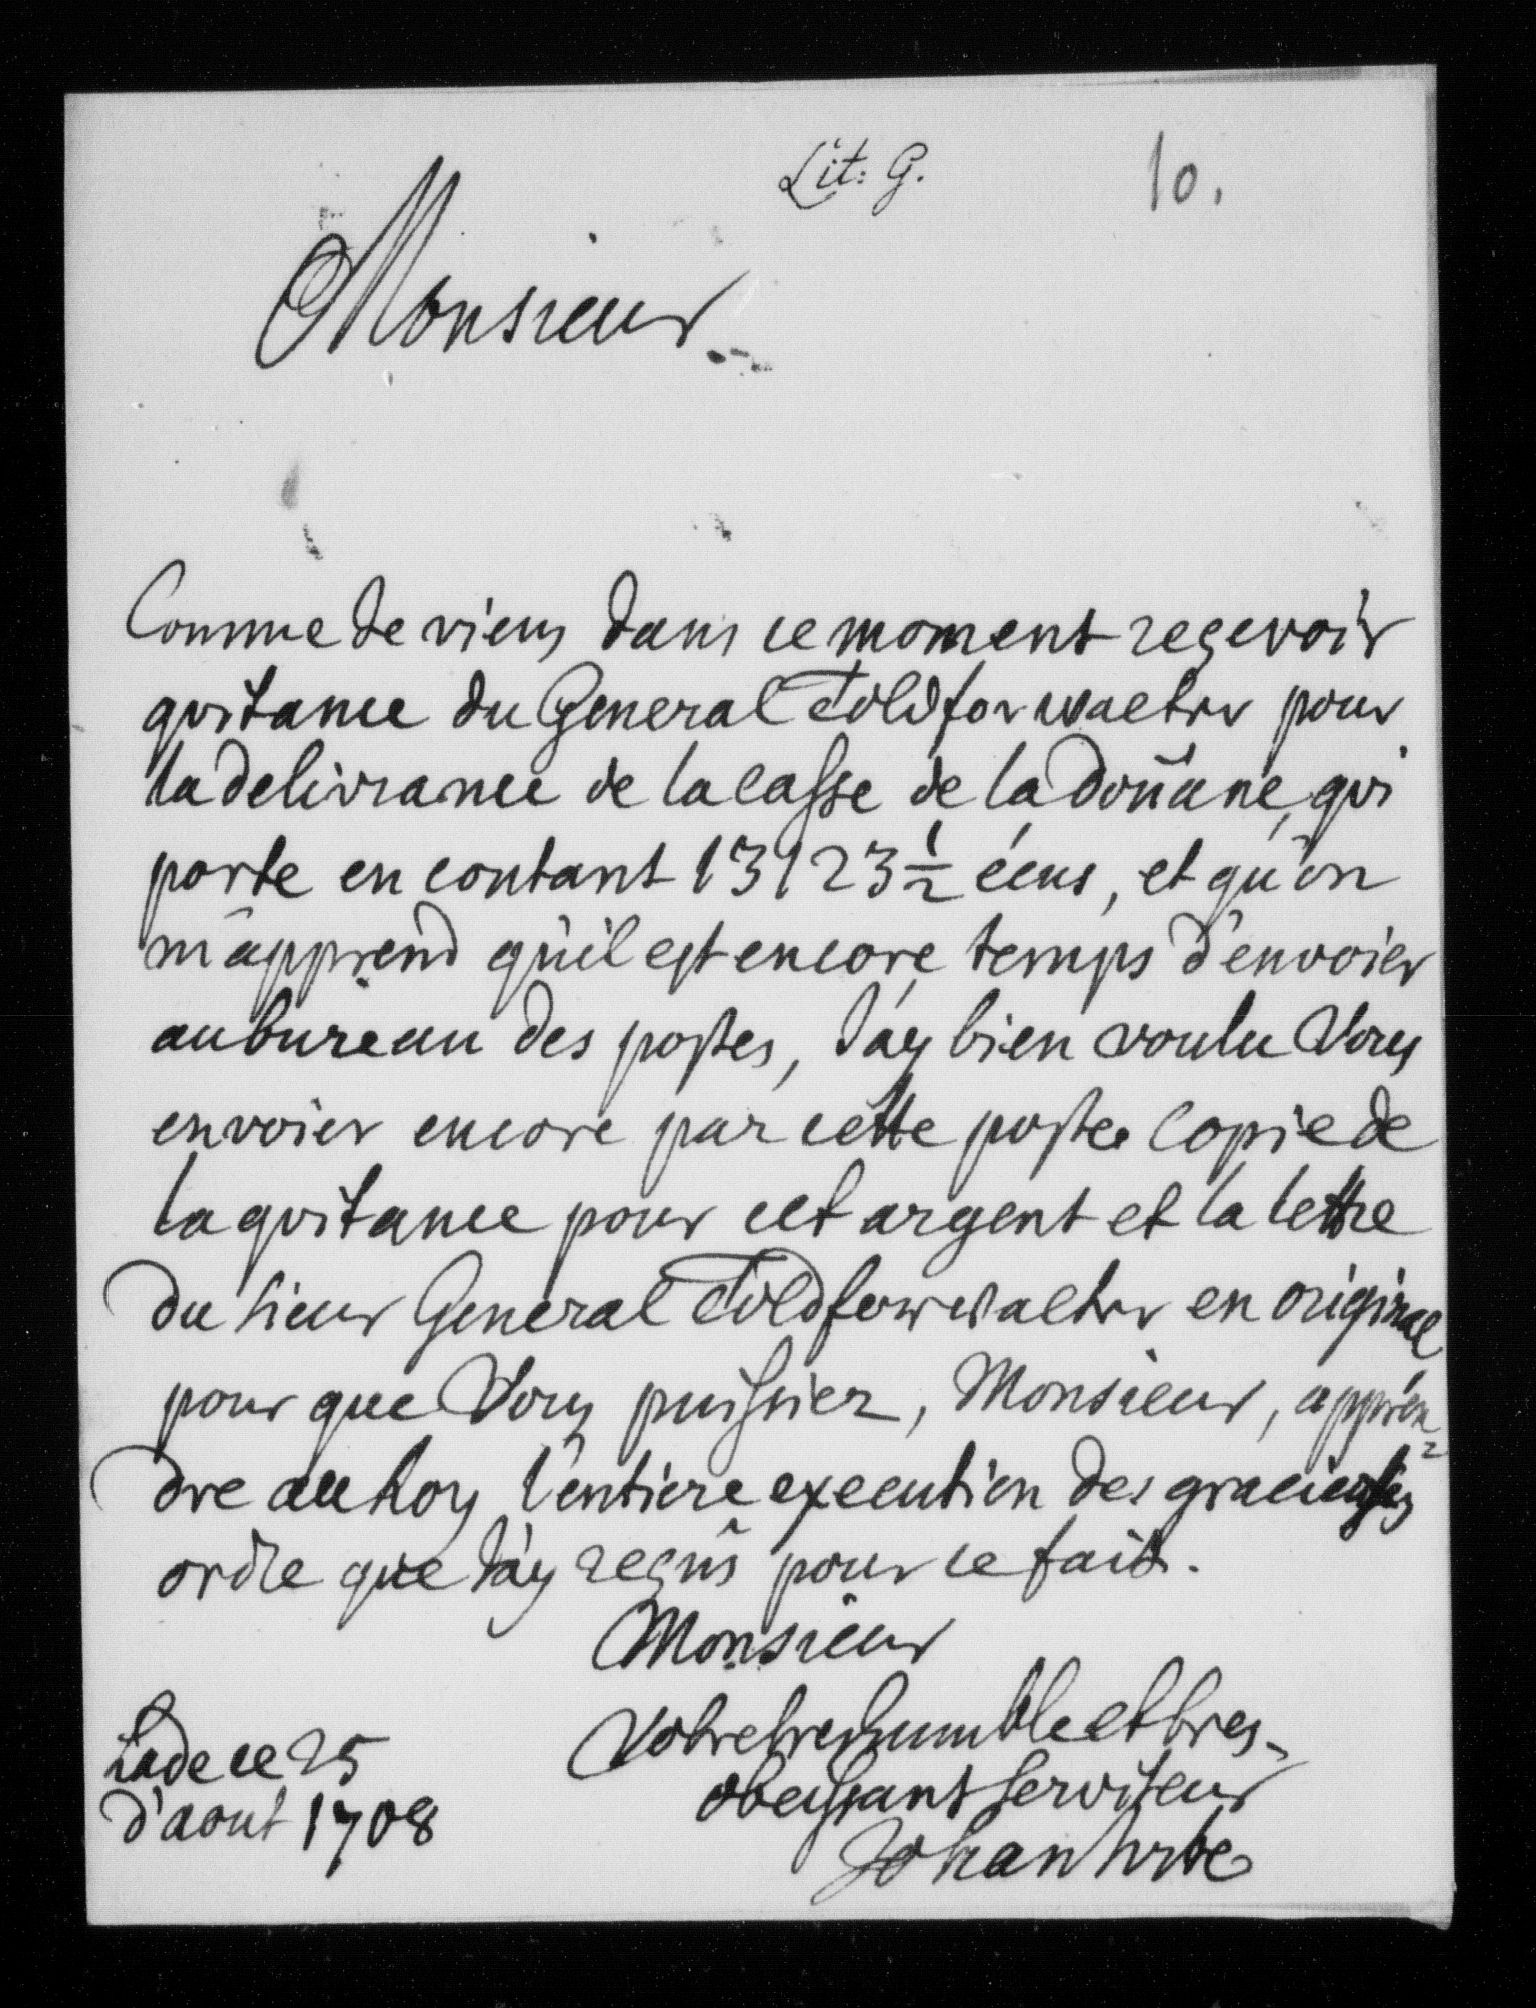 Lit: G.
10.
Monsieur
Comme Je viens dans ce moment reçevoir
qvitance du General Toldforwalter pour
la delivrance de la casse de la doüane, qvi
porte en contant 13123 1/2 écus, et qu'on
m'apprend qu'il est encore temps d'envoier
au bureau des postes, J'ay bien voulu Vous
envoier encore par cette poste copie de
la qvitance pour cet argent et la lettre
du sieur General Toldforwalter en original
pour que Vous puissiez, Monsieur, appren=
dre au Roy l'entiere execution des gracieuses
ordre que J'ay reçus pour ce fait.
Monsieur
Votre tres humble et tres-
obeissant serviteur
Johan
ce 25
d'aout 1708